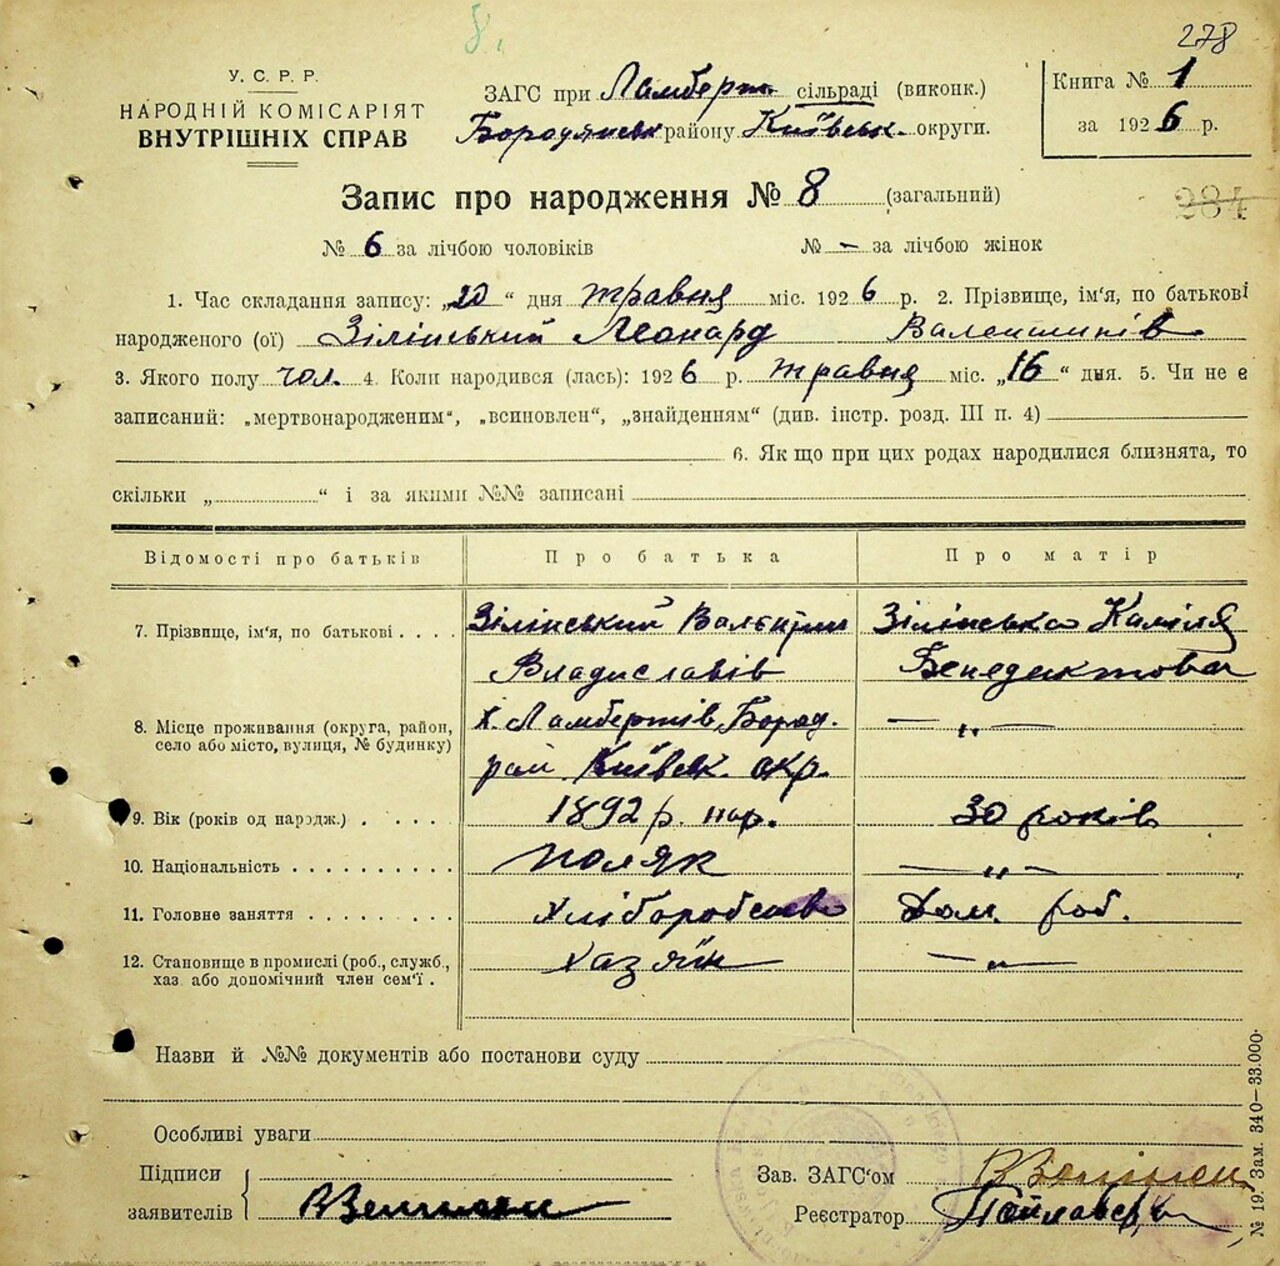 8.
278
У. С. Р. Р.
НАРОДНІЙ КОМІСАРІЯТ
ВНУТРІШНІХ СПРАВ
ЗАГС при Ламберт сільраді (виконк.)
Бородянськ району Київськ. округи.
Книга № 1
за 1926 р.
Запис про народження № 8 (загальний)
284
№ 6 за лічбою чоловіків № – за лічбою жінок
1. Час складання запису: „20“ дня травня міс. 1926 р. 2. Прізвище, ім'я, по батькові
народженого (ої) Зілінський Леонард Валентинів
3. Якого полу чол. 4. Коли народився (лась): 1926 р. травня міс. „16“ дня. 5. Чи не є
записаний: „мертвонародженим“, „всиновлен“, „знайденням“ (див. інстр. розд. III п. 4)
6. Як що при цих родах народилися близнята, то
скільки „ “ і за якими №№ записані
Відомості про батьків Про батька Про матір
7. Прізвище, ім'я, по батькові . . . . Зілінський Валентин Зілінська Каміля
Владиславів Бенедиктова
8. Місце проживання (округа, район, село або місто, вулиця, № будинку) х. Ламбертів Бород. — „ —
рай. Київськ. окр.
9. Вік (років од народж.) . . . . . 1892 р. нар. 30 років
10. Національність . . . . . . . . . . поляк — „ —
11. Головне заняття . . . . . . . . . Хліборобство Дом. роб.
12. Становище в промислі (роб., служб., хаз. або допомічний член сем'ї . Хазяїн — „ —
Назви й №№ документів або постанови суду
Особливі уваги
Підписи
заявителів
Зав. ЗАГС'ом
Реєстратор
№ 19. Зам. 340—33.000.